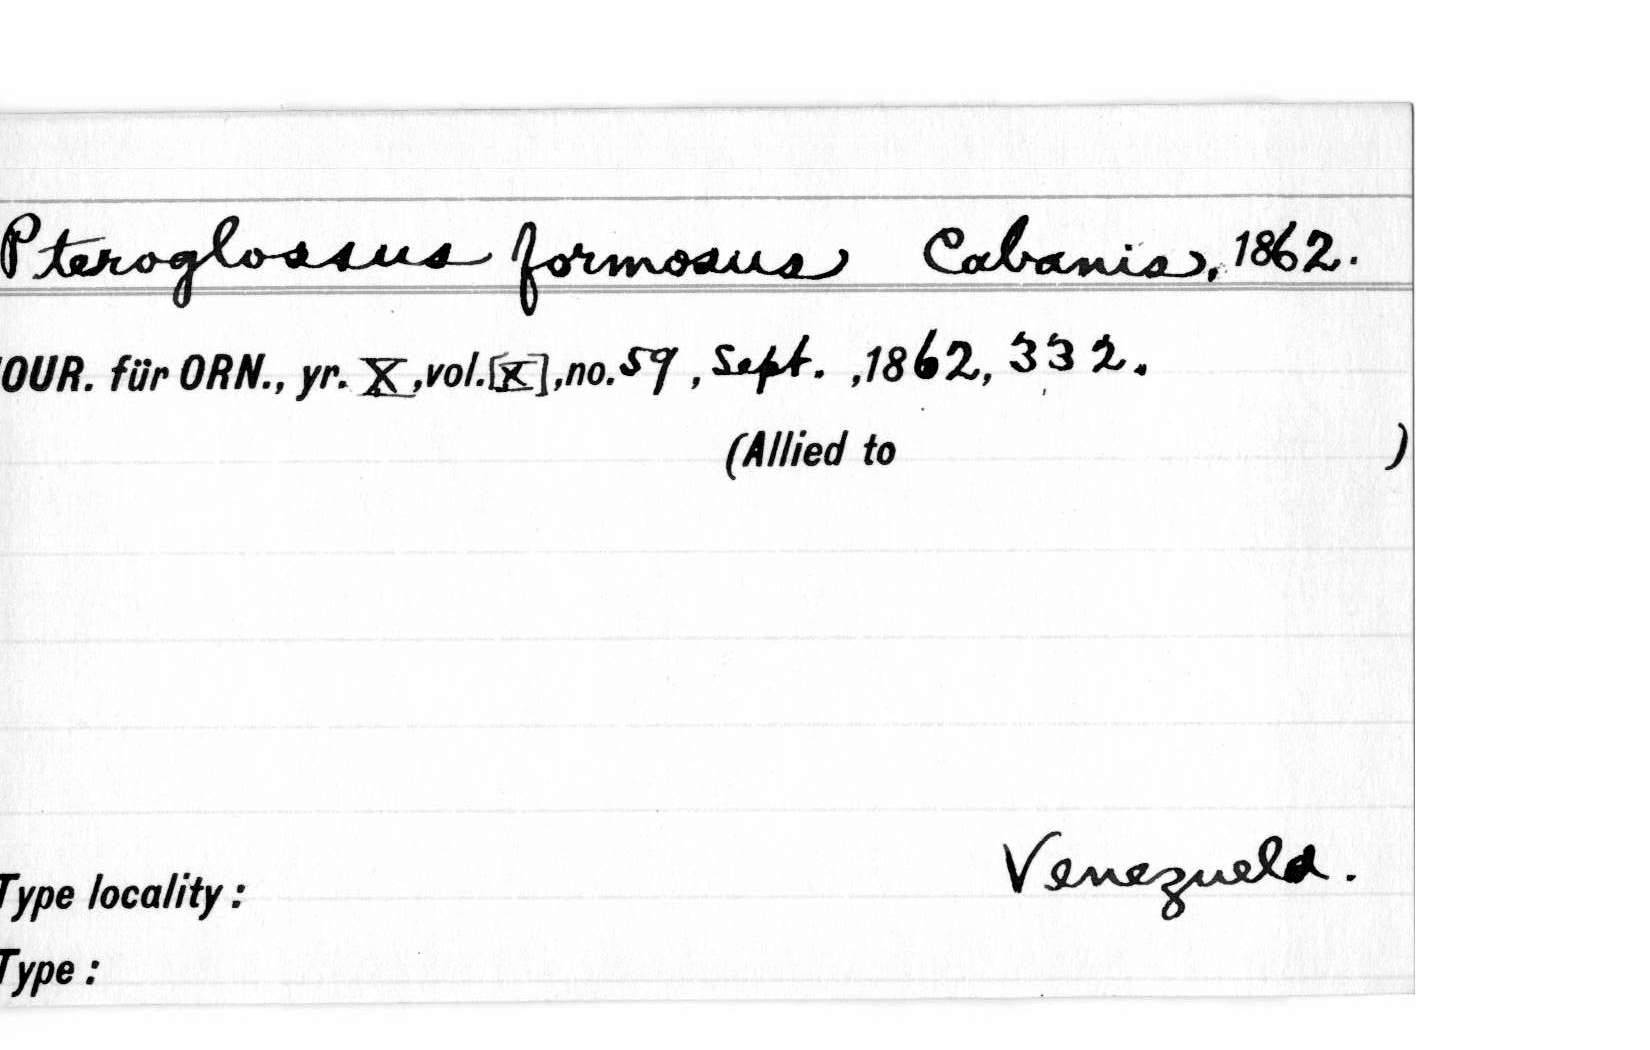 Pteroglossus formosus Cabanis, 1862.
JOUR. für ORN., yr. X, vol. [X], no. 59, Sept. , 1862, 332.
(Allied to )
Venezuela.
Type locality :
Type :